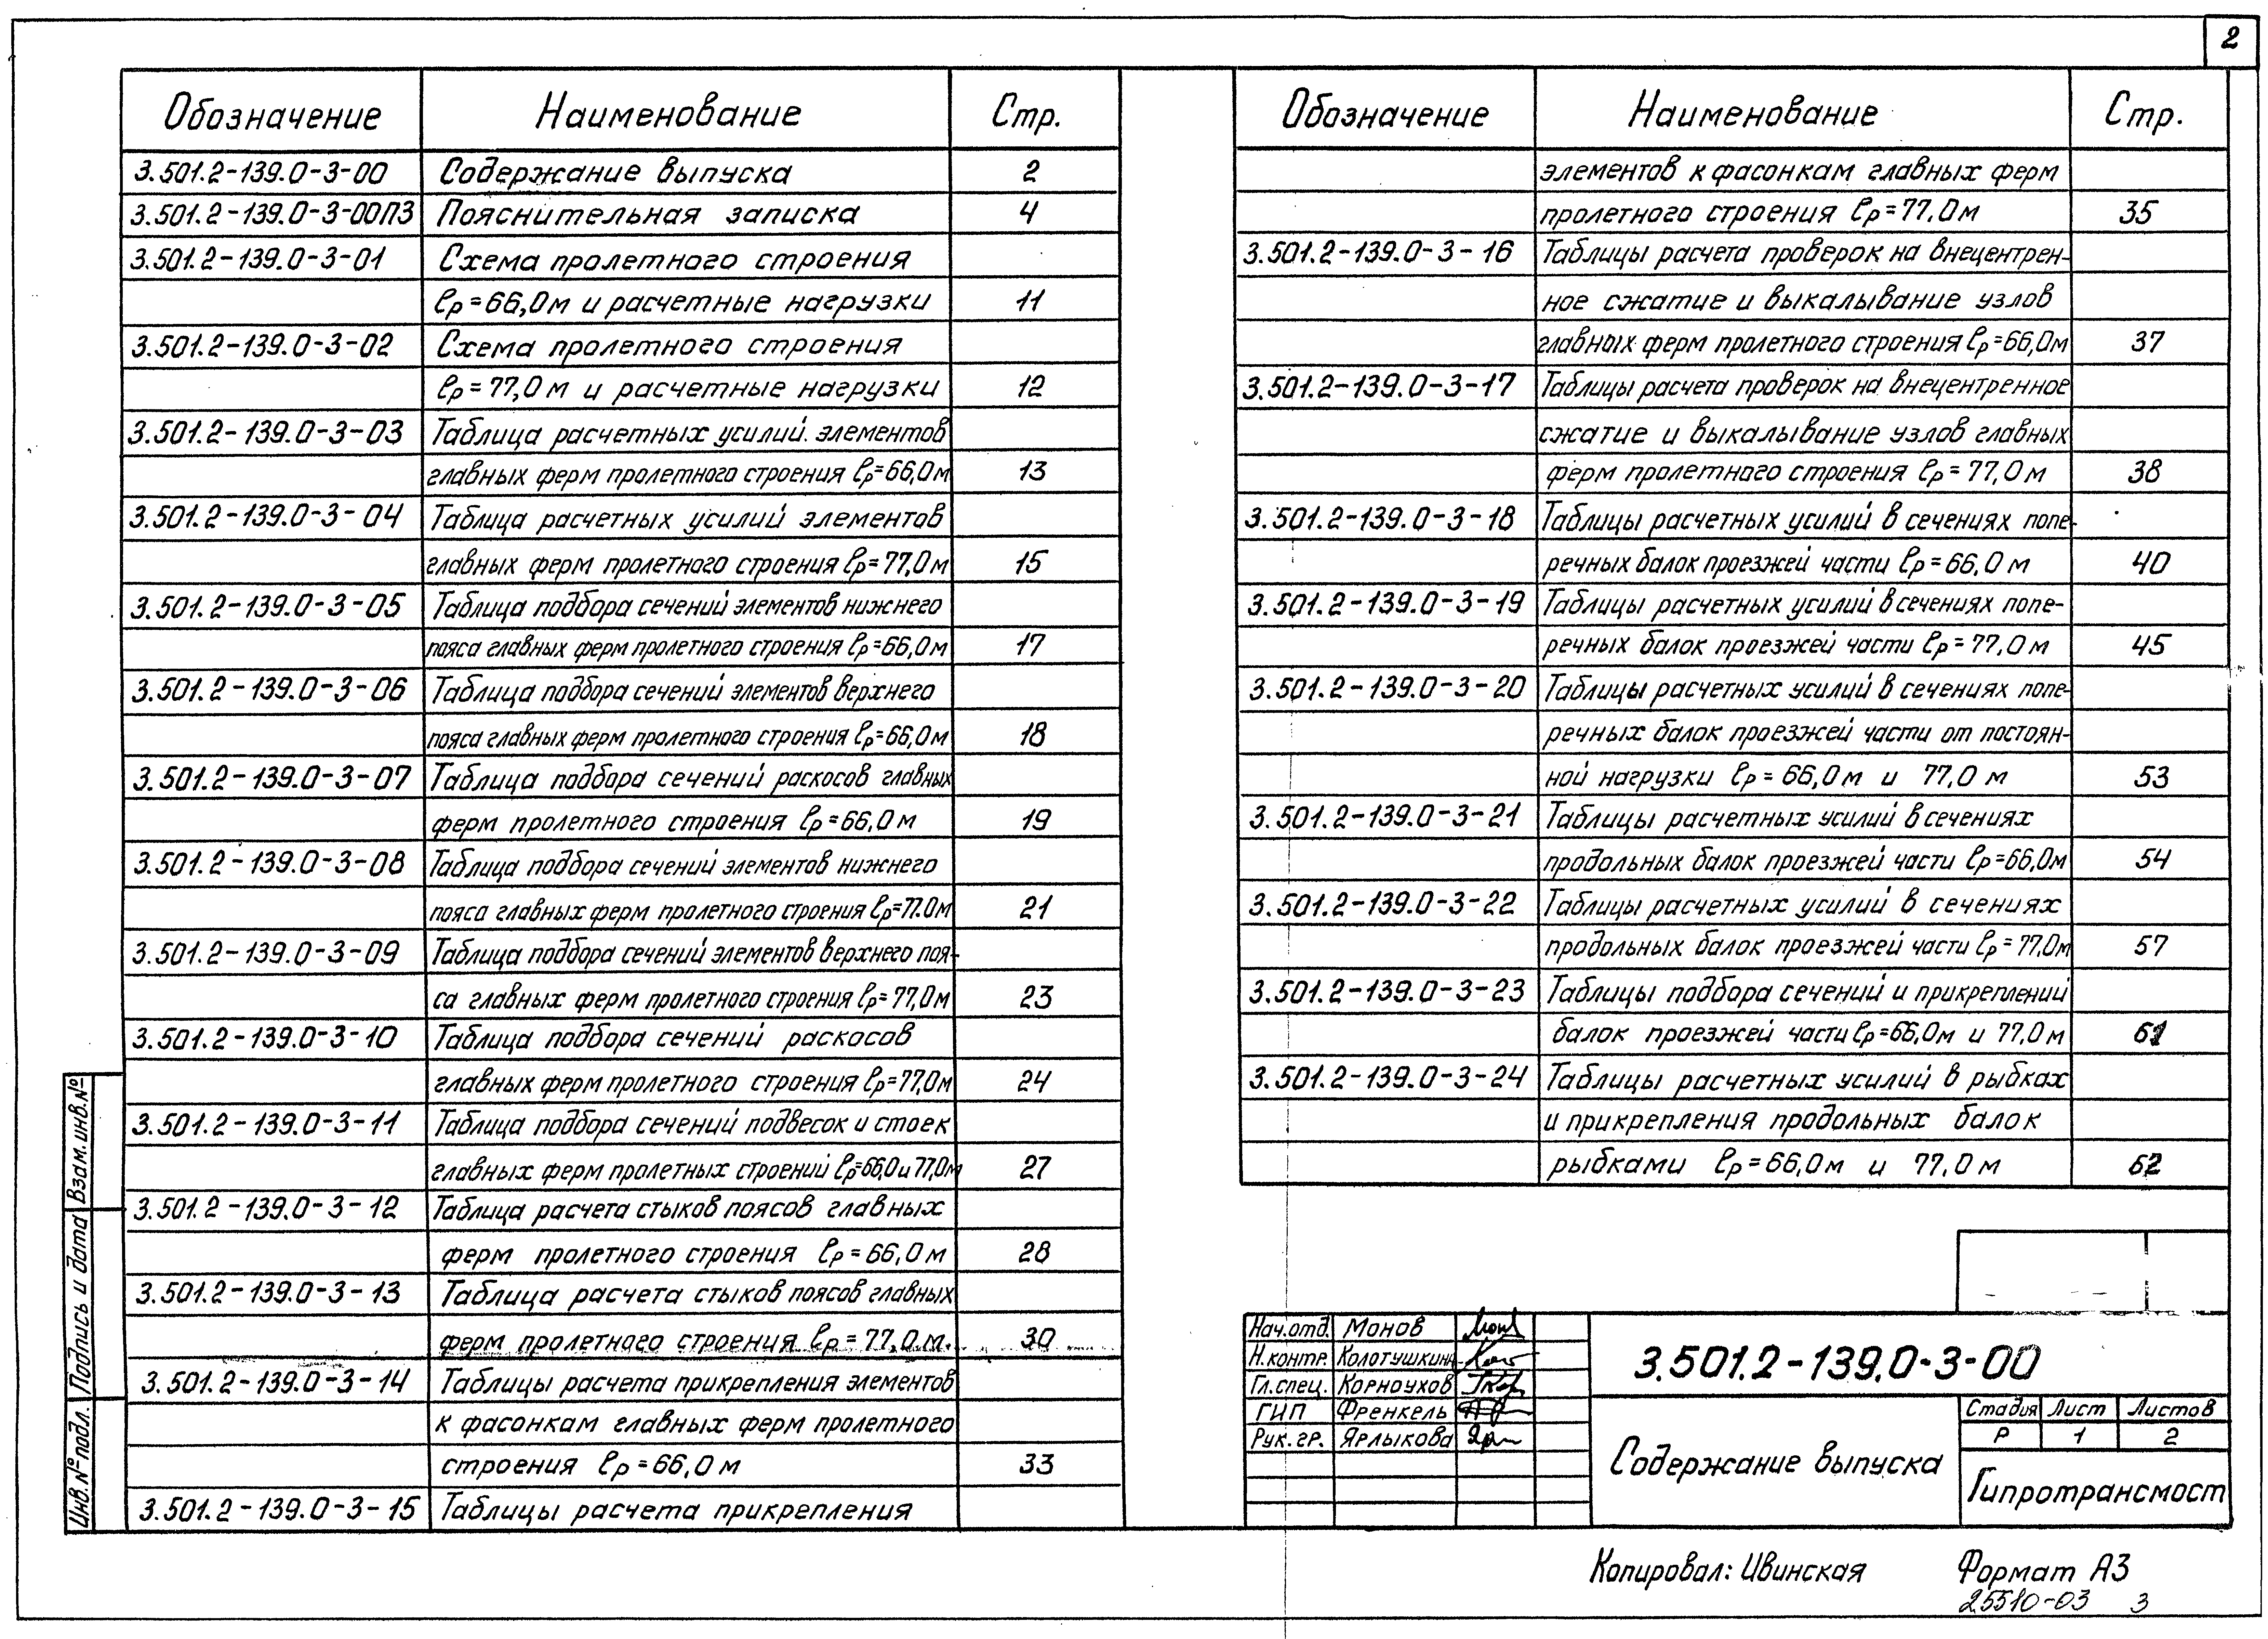 2
Обозначение Наименование Стр.
3.501.2-139.0-3-00 Содержание выпуска 2
3.501.2-139.0-3-00ПЗ Пояснительная записка 4
3.501.2-139.0-3-01 Схема пролетного строения
ℓр=66,0м и расчетные нагрузки 11
3.501.2-139.0-3-02 Схема пролетного строения
ℓр=77,0м и расчетные нагрузки 12
3.501.2-139.0-3-03 Таблица расчетных усилий элементов
главных ферм пролетного строения ℓр=66,0м 13
3.501.2-139.0-3-04 Таблица расчетных усилий элементов
главных ферм пролетного строения ℓр=77,0м 15
3.501.2-139.0-3-05 Таблица подбора сечений элементов нижнего
пояса главных ферм пролетного строения ℓр=66,0м 17
3.501.2-139.0-3-06 Таблица подбора сечений элементов верхнего
пояса главных ферм пролетного строения ℓр=66,0м 18
3.501.2-139.0-3-07 Таблица подбора сечений раскосов главных
ферм пролетного строения ℓр=66,0м 19
3.501.2-139.0-3-08 Таблица подбора сечений элементов нижнего
пояса главных ферм пролетного строения ℓр=77.0м 21
3.501.2-139.0-3-09 Таблица подбора сечений элементов верхнего поя-
са главных ферм пролетного строения ℓр=77,0м 23
3.501.2-139.0-3-10 Таблица подбора сечений раскосов
главных ферм пролетного строения ℓр=77,0м 24
3.501.2-139.0-3-11 Таблица подбора сечений подвесок и стоек
главных ферм пролетных строений ℓр=66,0 и 77,0м 27
3.501.2-139.0-3-12 Таблица расчета стыков поясов главных
ферм пролетного строения ℓр=66,0м 28
3.501.2-139.0-3-13 Таблица расчета стыков поясов главных
ферм пролетного строения ℓр=77,0м. 30
3.501.2-139.0-3-14 Таблицы расчета прикрепления элементов
к фасонкам главных ферм пролетного
строения ℓр=66,0м 33
3.501.2-139.0-3-15 Таблицы расчета прикрепления
Обозначение Наименование Стр.
элементов к фасонкам главных ферм
пролетного строения ℓр=77,0м 35
3.501.2-139.0-3-16 Таблицы расчета проверок на внецентрен-
ное сжатие и выкалывание узлов
главных ферм пролетного строения ℓр=66,0м 37
3.501.2-139.0-3-17 Таблицы расчета проверок на внецентренное
сжатие и выкалывание узлов главных
ферм пролетного строения ℓр=77,0м 38
3.501.2-139.0-3-18 Таблицы расчетных усилий в сечениях попе-
речных балок проезжей части ℓр=66,0м 40
3.501.2-139.0-3-19 Таблицы расчетных усилий в сечениях попе-
речных балок проезжей части ℓр=77,0м 45
3.501.2-139.0-3-20 Таблицы расчетных усилий в сечениях попе-
речных балок проезжей части от постоян-
ной нагрузки ℓр=66,0м и 77,0м 53
3.501.2-139.0-3-21 Таблицы расчетных усилий в сечениях
продольных балок проезжей части ℓр=66,0м 54
3.501.2-139.0-3-22 Таблицы расчетных усилий в сечениях
продольных балок проезжей части ℓр=77,0м 57
3.501.2-139.0-3-23 Таблицы подбора сечений и прикреплений
балок проезжей части ℓр=66,0м и 77,0м 61
3.501.2-139.0-3-24 Таблицы расчетных усилий в рыбках
и прикрепления продольных балок
рыбками ℓр=66,0м и 77,0м 62
Нач.отд. Монов
Н.контр. Колотушкина
Гл.спец. Корноухов
ГИП Френкель
Рук.гр. Ярлыкова
3.501.2-139.0-3-00
Содержание выпуска
Стадия Лист Листов
Р 1 2
Гипротрансмост
Взам.инв.№
Подпись и дата
Инв.№ подл.
Копировал: Ивинская Формат А3
25510-03 3